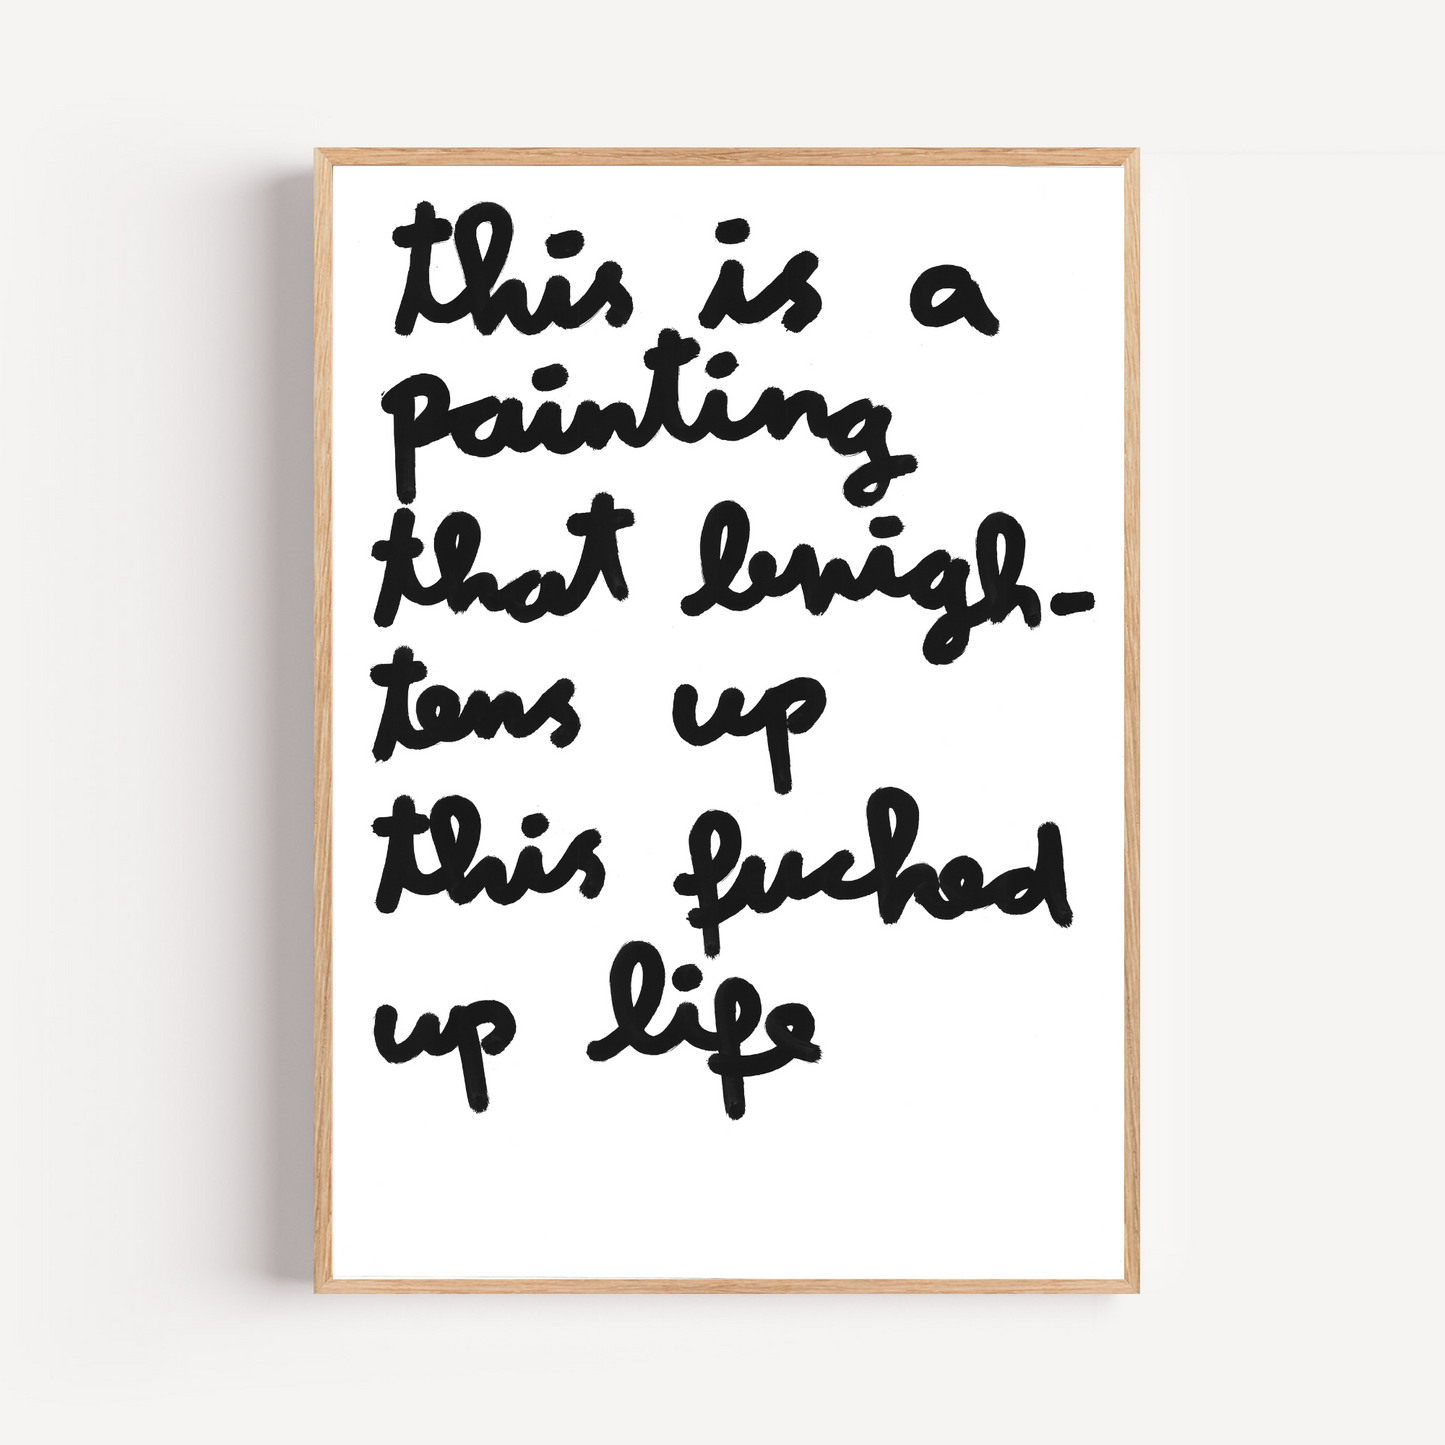 this is a
painting
that lenigh-
tens up
this fucked
up life